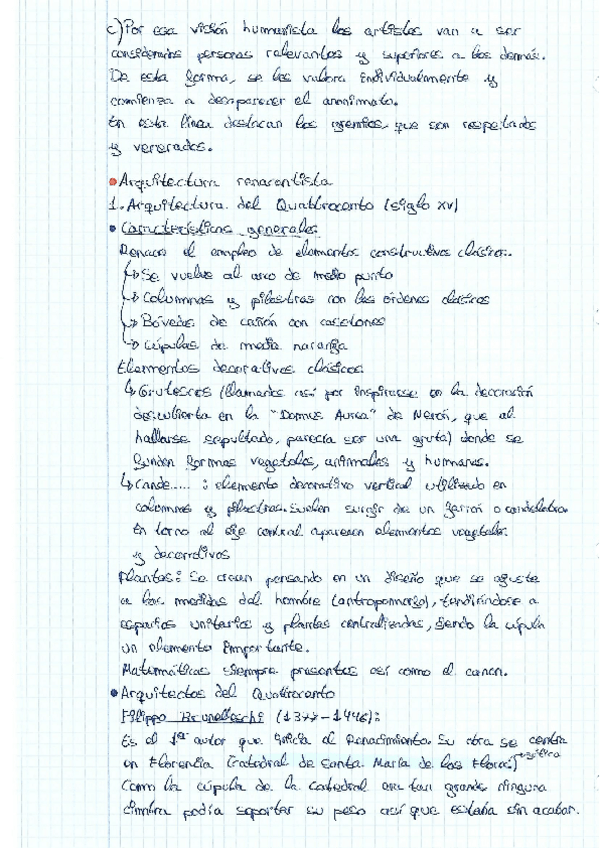 c) Por esa visión humanista los artistas van a ser
considerados personas relevantes y superiores a los demás.
De esta forma, se les valora individualmente y
comienza a desaparecer el anonimato.
En esta línea destacan los gremios, que son respetados
y venerados.
• Arquitectura renacentista
1. Arquitectura del Quattrocento (siglo XV)
• Características generales
Renace el empleo de elementos constructivos clásicos.
↳ Se vuelve al arco de medio punto
↳ Columnas y pilastras con los órdenes clásicos
↳ Bóvedas de cañón con casetones
↳ Cúpulas de media naranja
Elementos decorativos clásicos
↳ Grutescos (llamados así por inspirarse en la decoración
descubierta en la "Domus Aurea" de Nerón, que al
hallarse sepultado, parecía ser una gruta) donde se
funden formas vegetales, animales y humanas.
↳ Cande..... : elemento decorativo vertical utilizado en
columnas y pilastras. Suelen surgir de un jarrón o candelabro.
En torno al eje central aparecen elementos vegetales
y decorativos
Plantas: Se crean pensando en un diseño que se ajuste
a las medidas del hombre (antropomorfo), tendiéndose a
espacios unitarios y plantas centralizadas, siendo la cúpula
un elemento importante.
Matemáticas siempre presentes así como el canon.
• Arquitectos del Quattrocento
Filippo Brunelleschi (1377-1446):
Es el 1er autor que inicia el Renacimiento. Su obra se centra
en Florencia (Catedral de Santa María de las Flores) gótica
Como la cúpula de la catedral era tan grande ninguna
cimbra podía soportar su peso así que estaba sin acabar.